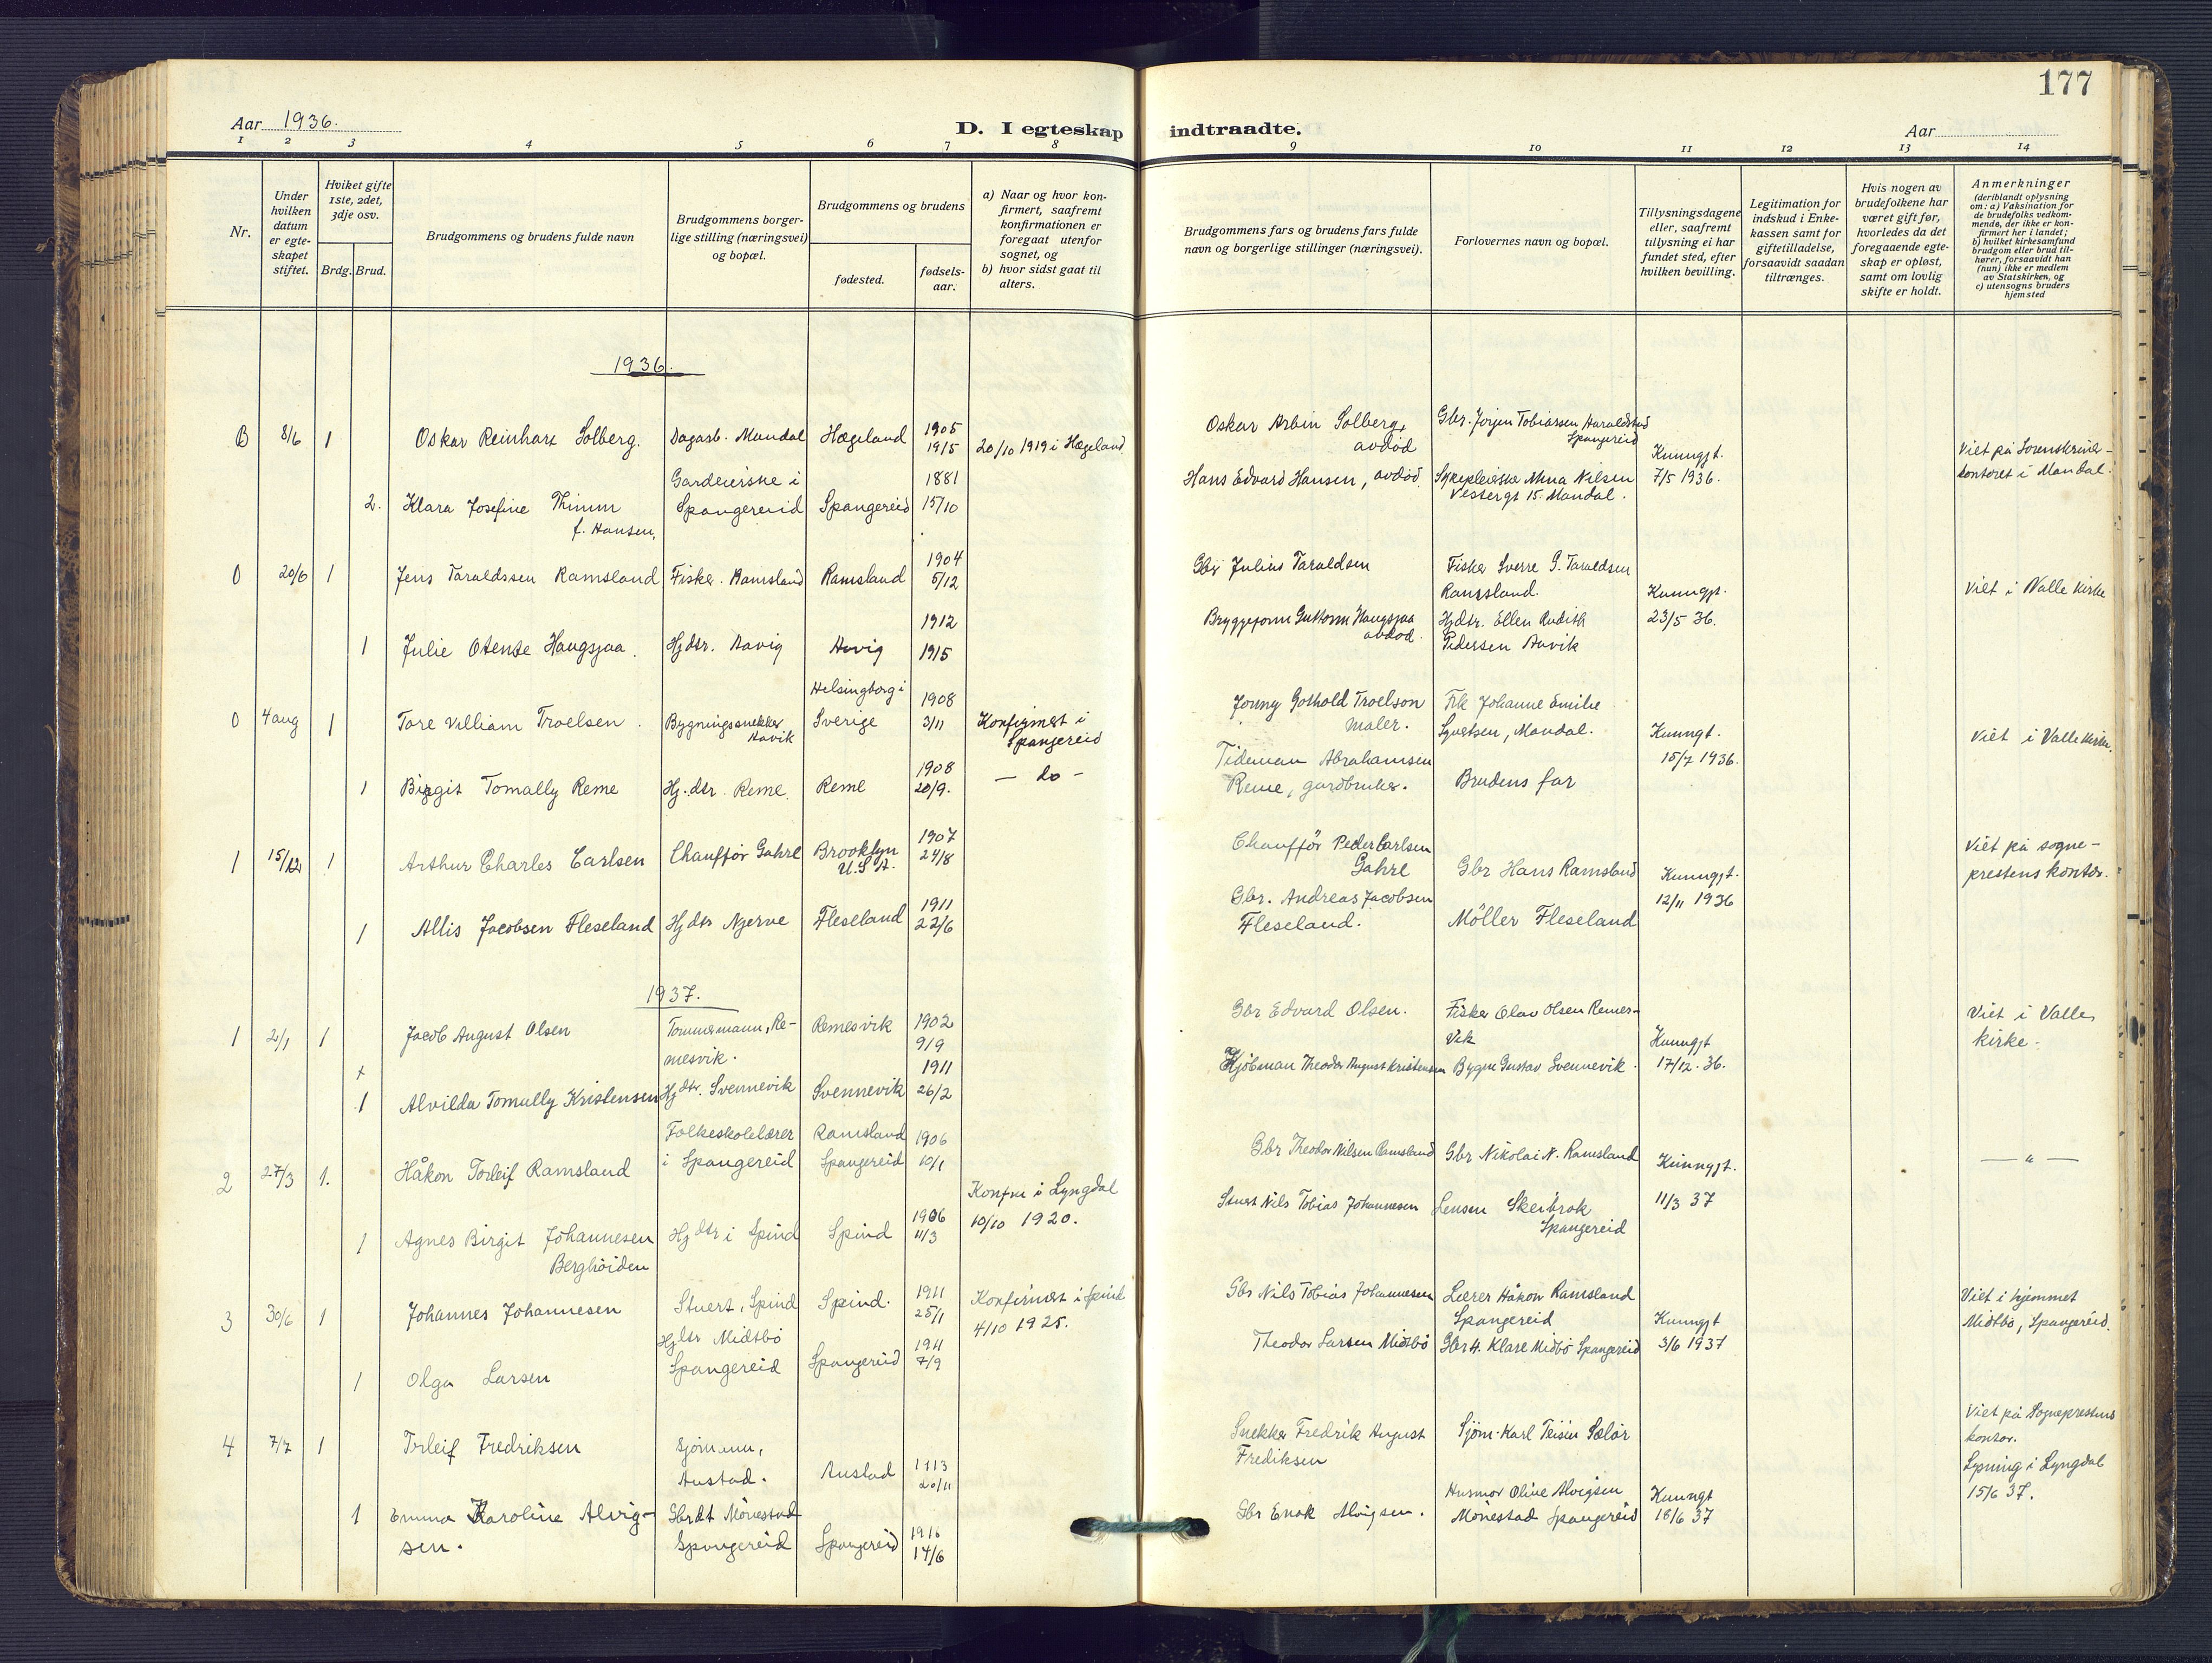 177
Aar 1936.
D. I egteskap indtraadte.
Aar
1 2 3 4 5 6 7 8 9 10 11 12 13 14
Nr.
Under hvilken datum er egte-skapet stiftet.
Hviket gifte 1ste, 2det, 3dje osv.
Brdg. Brud.
Brudgommens og brudens fulde navn
Brudgommens borger-lige stilling (næringsvei) og bopæl.
Brudgommens og brudens
fødested.
fødsels-aar.
a) Naar og hvor kon-firmert, saafremt konfirmationen er foregaat utenfor sognet, og
b) hvor sidst gaat til alters.
Brudgommens fars og brudens fars fulde navn og borgerlige stillinger (næringsvei).
Forlovernes navn og bopæl.
Tillysningsdagene eller, saafremt tillysning ei har fundet sted, efter hvilken bevilling.
Legitimation for indskud i Enke-kassen samt for giftetilladelse, forsaavidt saadan tiltrænges.
Hvis nogen av brudefolkene har været gift før, hvorledes da det foregaaende egte-skap er opløst, samt om lovlig skifte er holdt.
Anmerkninger
(deriblandt oplysning om: a) Vaksination for de brudefolks vedkom-mende, der ikke er kon-firmert her i landet;
b) hvilket kirkesamfund brudgom eller brud til-hører, forsaavidt han (hun) ikke er medlem av Statskirken, og
c) utensogns bruders hjemsted
1936.
B 8/6 1 Oskar Reinhart Solberg. Dagarb. Mandal Hægeland 1905 19/5 20/10 1919 i Hægeland
Oskar Arbin Solberg, avdød
Gbr. Jørgen Tobiassen Haraldstad Spangereid
Kunngjt. 7/5 1936.
Viet på Sorenskriver-kontoret i Mandal.
2. Klara Josefine Thimm f. Hansen, Gardeierske i Spangereid Spangereid 1881 15/10
Hans Edvard Hansen, avdød
Sykepleierske Anna Nilsen Vestergt 15. Mandal.
0 20/6 1 Jens Taraldssen Ramsland Fisker. Ramsland Ramsland 1904 5/12
Gbr Julius Taraldsen
Fisker Sverre G. Taraldsen Ramsland.
Kunngjt. 23/5 36.
Viet i Valle kirke
1 Julie Otense Haugsjaa. Hjdtr. Aavig Aavig 1912 19/5
Bryggeform Guttorm Haugsjaa avdød.
Hjdtr. Ellen Audith Pedersen Aavik
0 4 aug 1 Tore Villiam Troelsen. Bygningssnekker Aavik Helsingborg i Sverige 1908 3/11 Konfirmert i Spangereid
Jonny Gothold Troelson maler.
Frk Johanne Emilie Syvertsen, Mandal.
Kunngt. 15/7 1936.
Viet i Valle kirke.
1 Birgit Tomally Reme Hj.dtr. Reme. Reme 1908 20/9. — do —
Tideman Abrahamsen Reme, gardbruker.
Brudens far
1 15/12 1 Arthur Charles Carlsen Chauffør Gahre Brooklyn U.S.A. 1907 24/8
Chauffør Peder Carlsen Gahre
Gbr Hans Ramsland
Kunngjt. 12/11 1936
Viet på sogne-prestens kontor.
1 Allis Jacobsen Fleseland Hjdtr Njerve Fleseland 1911 22/6
Gbr. Andreas Jacobsen Fleseland.
Möller Fleseland
1937.
1 2/1 1 Jacob August Olsen Tømmermann, Re-mesvik. Remesvik 1902 9/9
Gbr Edvard Olsen.
Fisker Olav Olsen Remes-vik
Kunngjt 17/12. 36.
Viet i Valle kirke.
x 1 Alvilda Tomally Kristensen Hjdtr. Svennevik Svennevik 1911 26/2
Kjöbman Theodor August Kristensen
Bygm Gustav Svennevik.
2 27/3 1. Håkon Torleif Ramsland Folkeskolelærer i Spangereid Ramsland Spangereid 1906 10/1
Gbr Theodor Nilsen Ramsland
Gbr Nikolai N. Ramsland
Kunngjt. 11/3 37
— " —
1 Agnes Birgit Johannesen Berghöiden Hjdtr i Spind Spind 1906 11/3 Konfm i Lyngdal 10/10 1920.
Stuert Nils Tobias Johannesen
Jensen Skeibrok Spangereid
3 30/6 1 Johannes Johannesen Stuert, Spind Spind. 1911 25/1 Konfirmert i Spind 4/10 1925.
Gbr Nils Tobias Johannesen
Lærer Håkon Ramsland Spangereid
Kunngjt 3/6 1937
Viet i hjemmet Midtbö, Spangereid.
1 Olga Larsen Hjdtr Midtbö Spangereid Spangereid 1911 7/9
Theodor Larsen Midtbö
Gbr H. Klare Midtbö Spangereid
4 7/7 1 Torleif Fredriksen Sjømann, Austad. Austad 1913 20/11
Snekker Fredrik August Fredriksen
Sjöm. Karl Teisen Selör
Kunngt 18/6 37
Viet på Sogneprestens kontor.
Lysning i Lyngdal 15/6 37.
1 Emma Karoline Alvig-sen. Gbrdt Mönestad Spangereid Spangereid 1916 14/6
Gbr Enok Alvigsen.
Husmor Olive Alvigsen Mönestad Spangereid